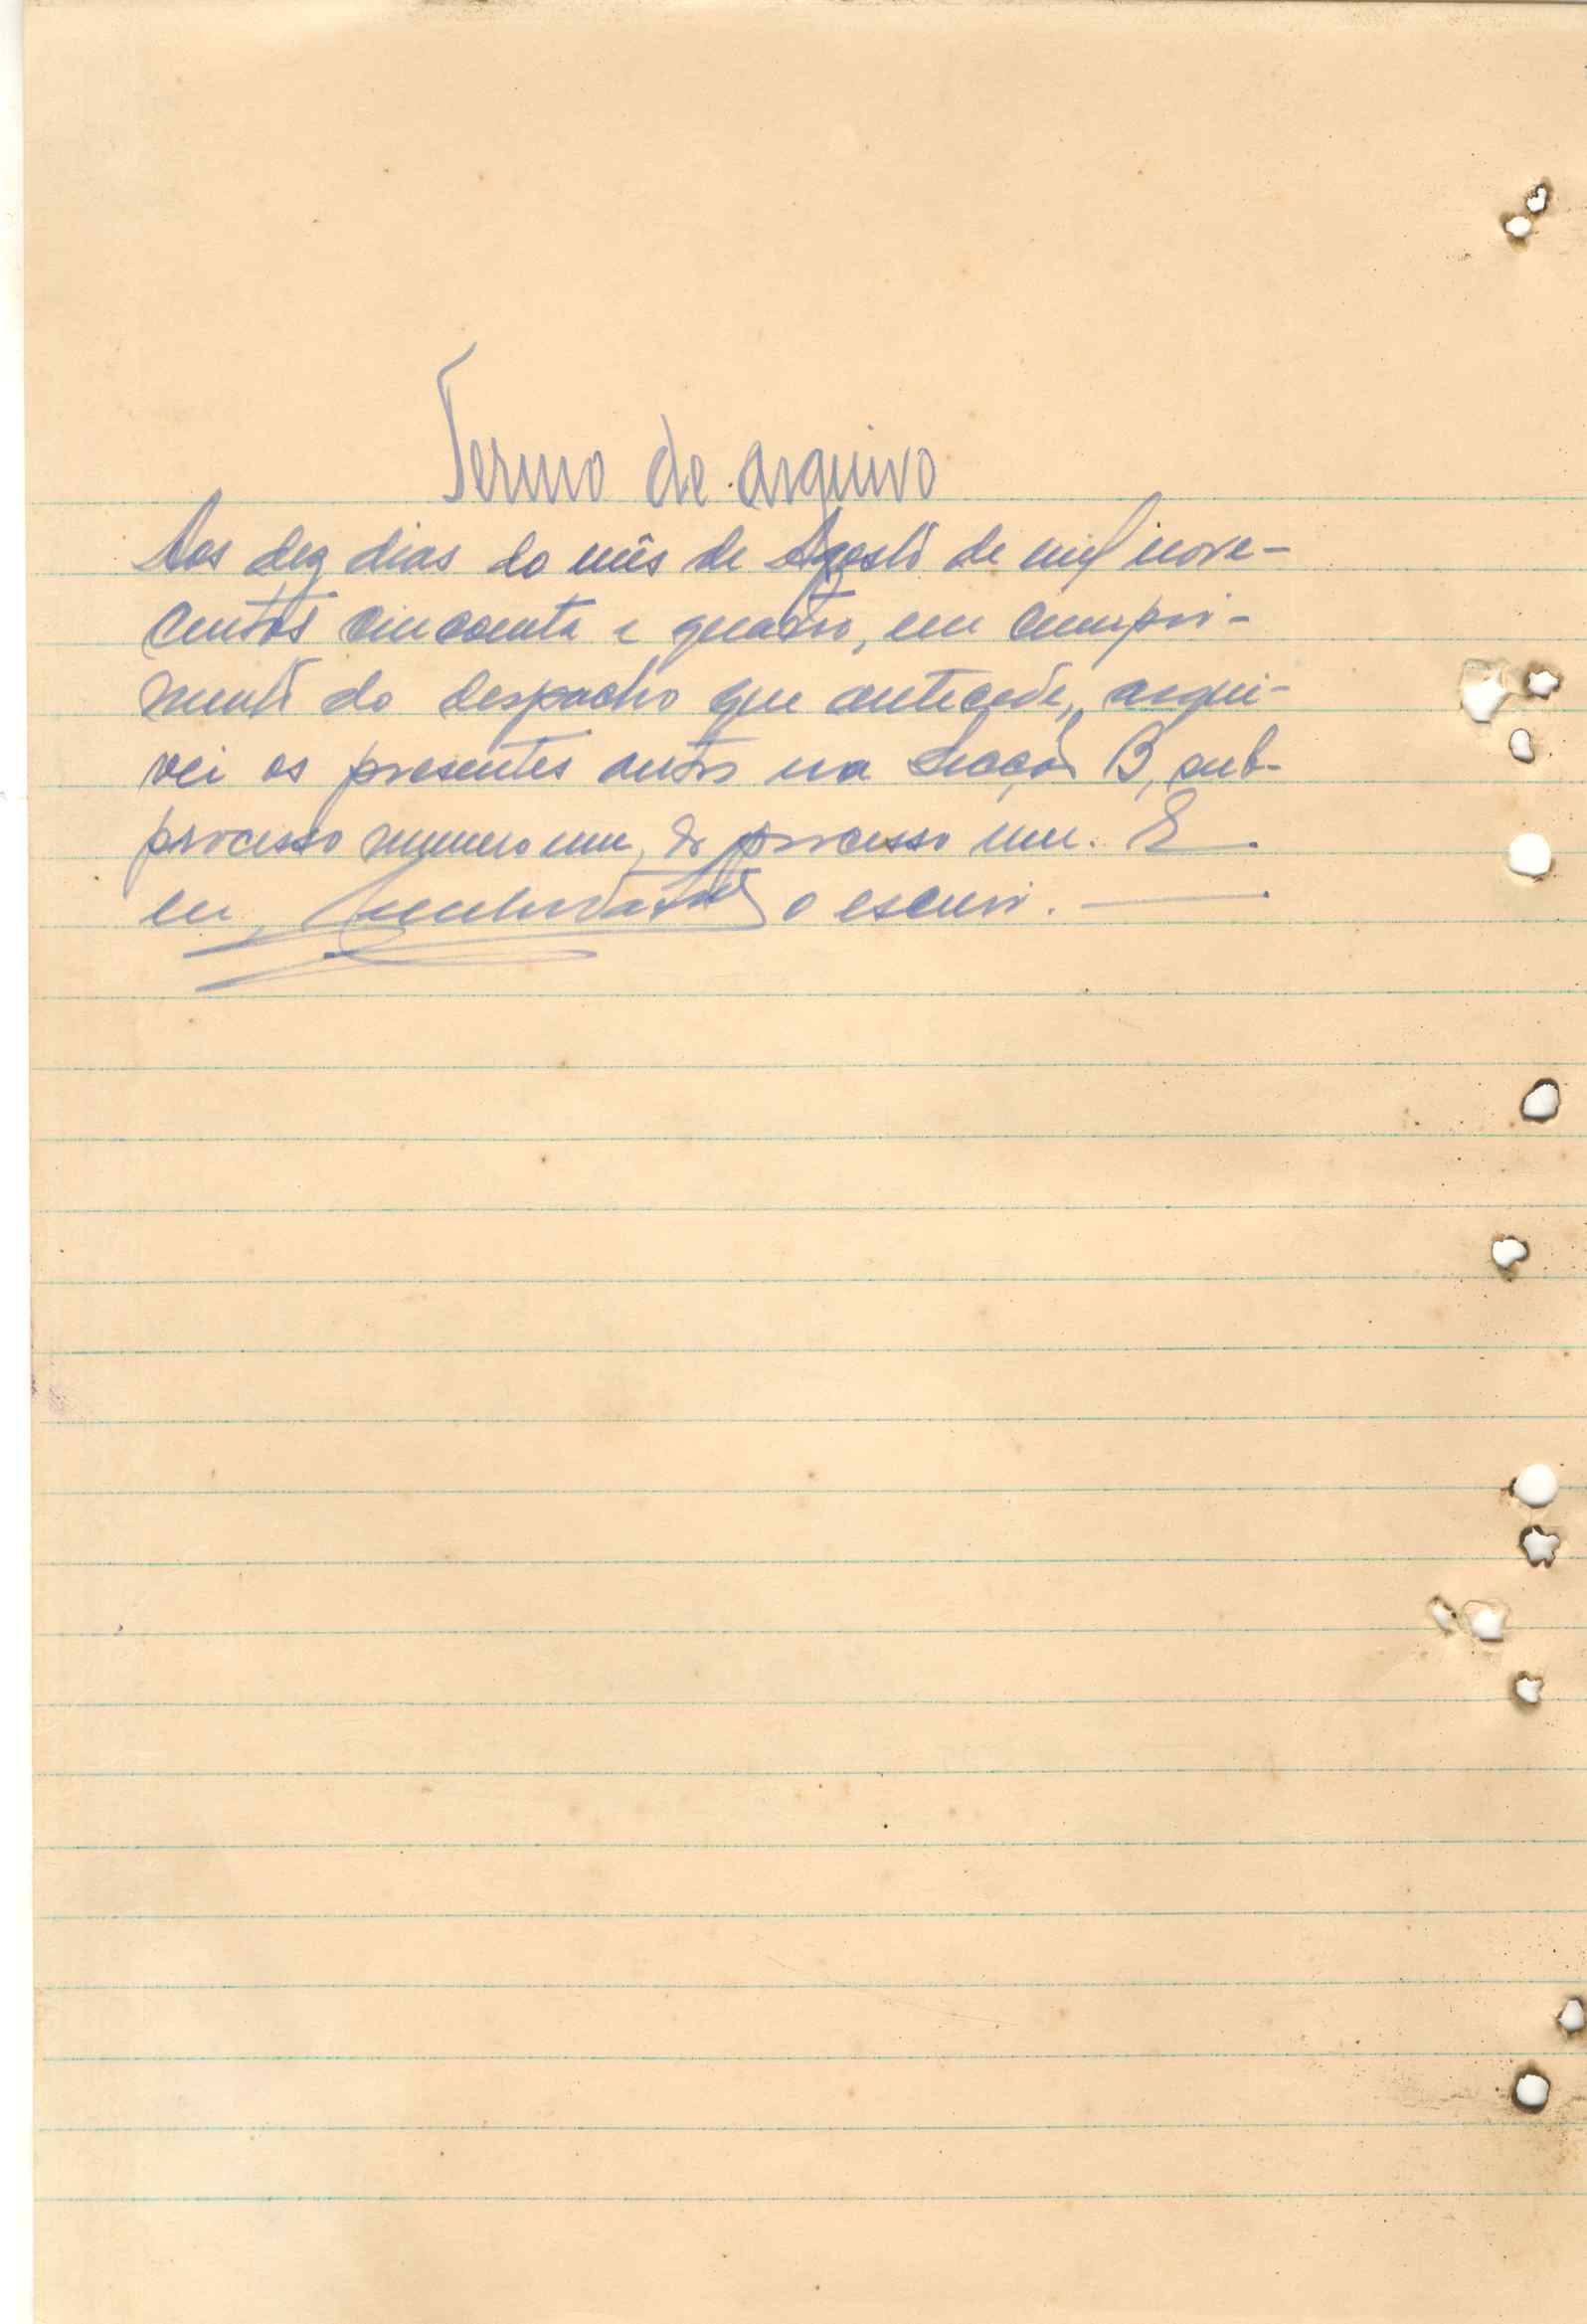 Termo de arquivo
Aos dez dias do mês de Agosto de mil nove-
centos cincoenta e quatro, em cumpri-
mento do despacho que antecede, arqui-
vei os presentes autos na Secção B, sub-
processo numero um, do processo um. E
eu, o escrevi.